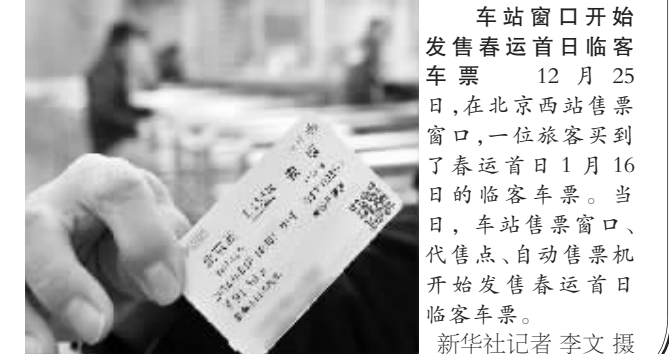 车站窗口开始
发售春运首日临客
车票 12 月 25
日,在北京西站售票
窗口,一位旅客买到
了春运首日 1 月 16
日的临客车票。当
日，车站售票窗口、
代售点、自动售票机
开始发售春运首日
临客车票。
新华社记者 李文 摄